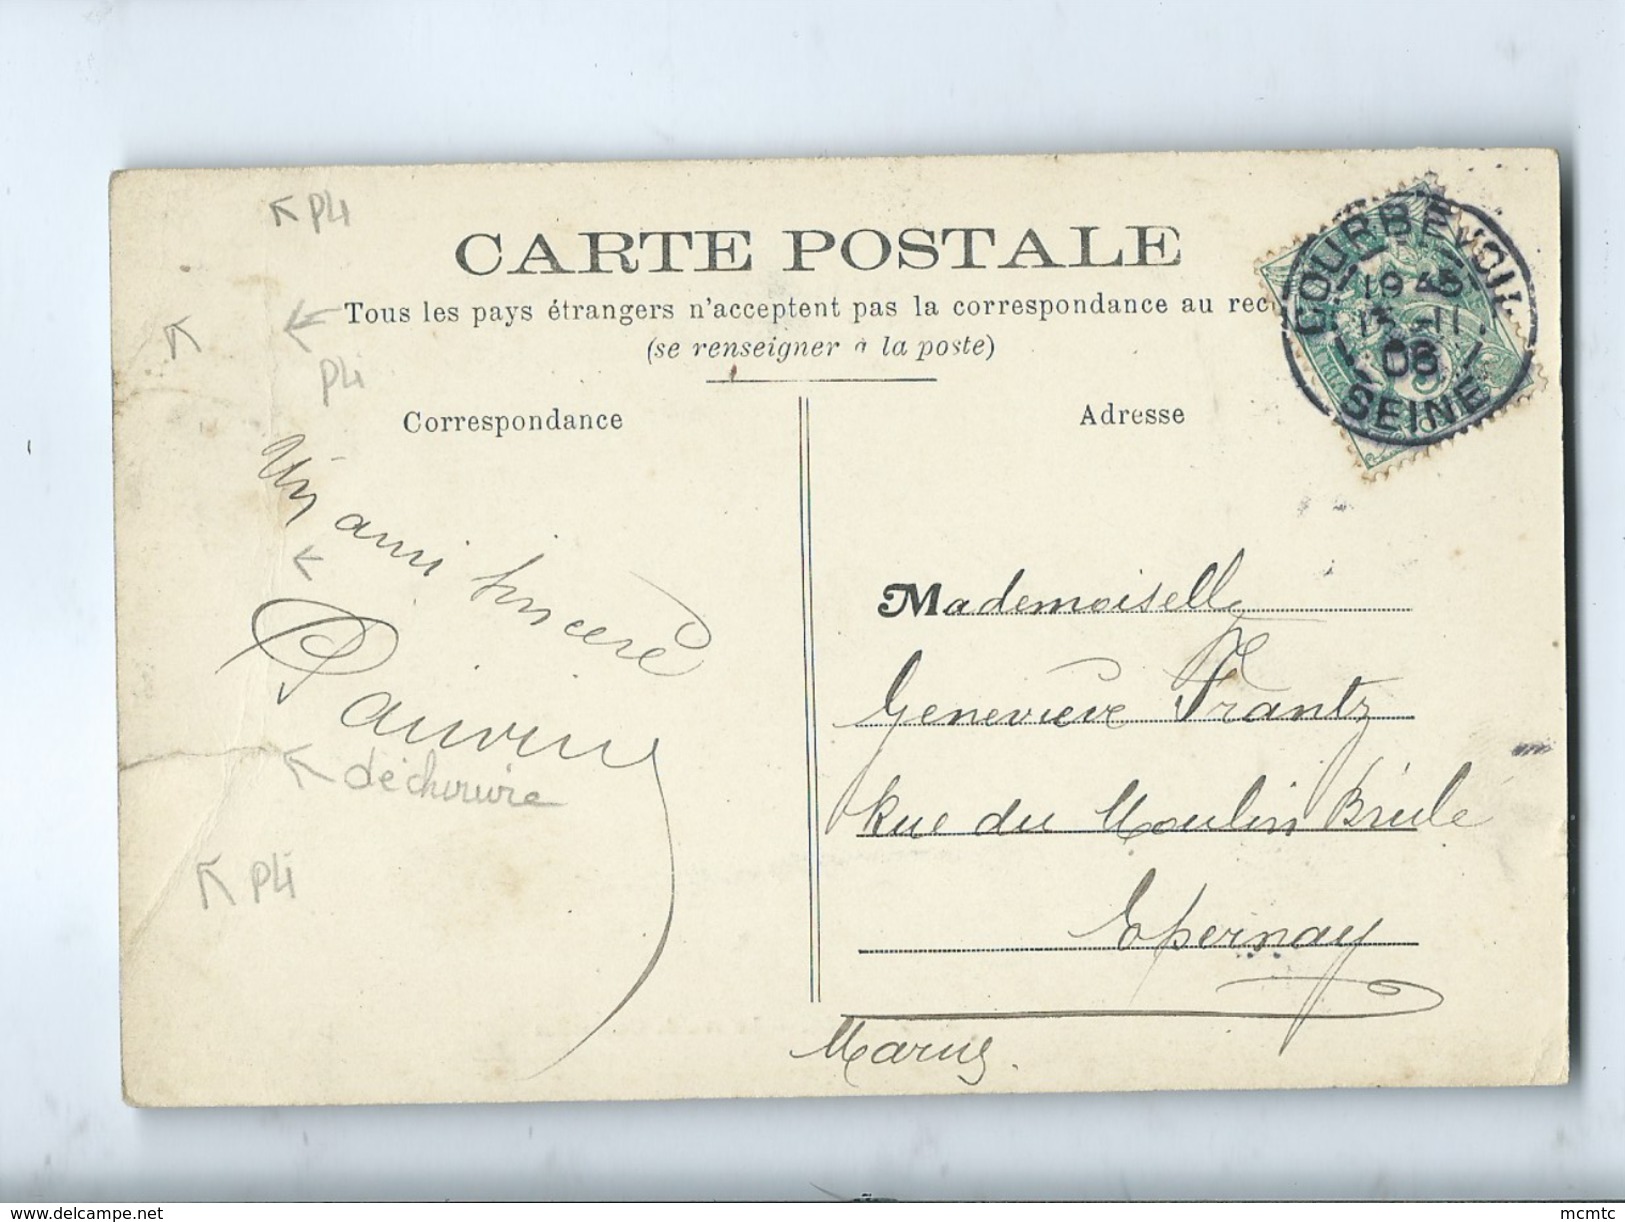 PLI
CARTE POSTALE
Tous les pays étrangers n'acceptent pas la correspondance au rec
(se renseigner à la poste)
PLI
COURBEVOIE
19 45
11
06
SEINE
Correspondance
Adresse
Un ami sincère
déchirure
PLI
Mademoiselle
Geneviève Frantz
Rue du Moulin Brulé
Epernay
Marne.
www.delcampe.net
mcmtc